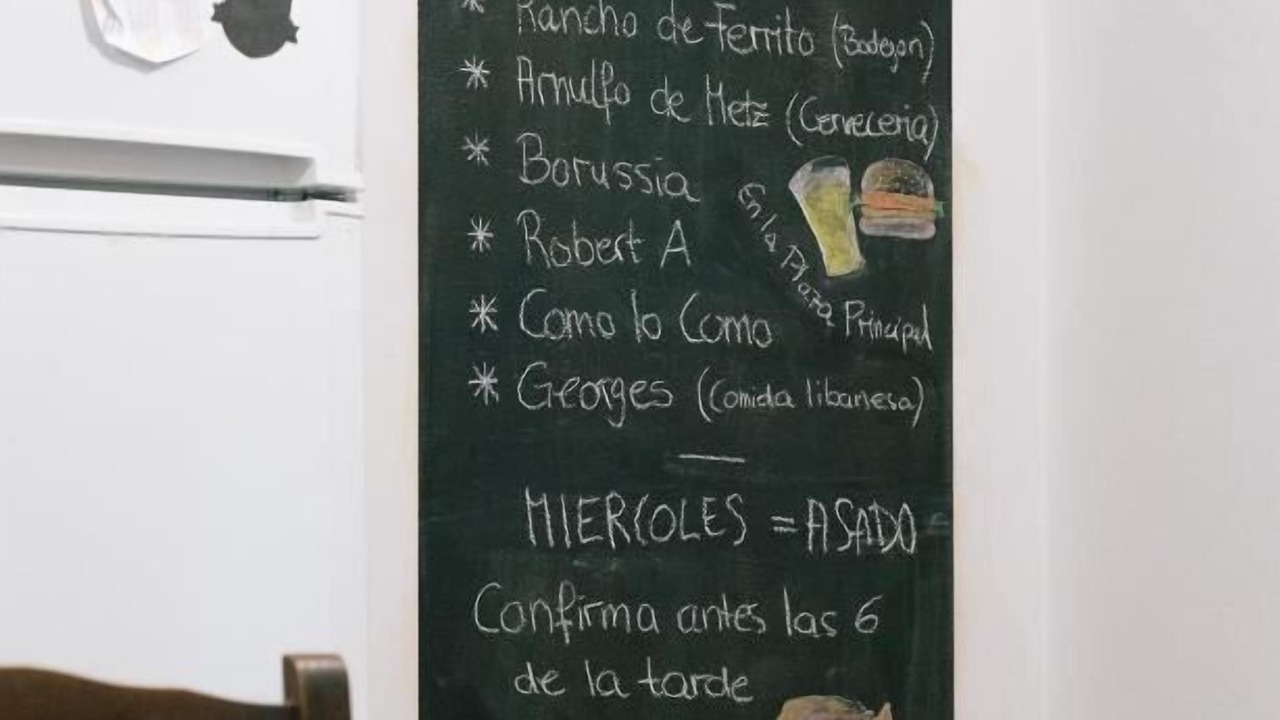 * Rancho de Ferrito (Bodegon)
* Arnulfo de Metz (Cerveceria)
* Borussia
* Robert A
En la Plaza Principal
* Como lo Como
* Georges (Comida libanesa)
—
MIERCOLES = ASADO
Confirma antes las 6
de la tarde